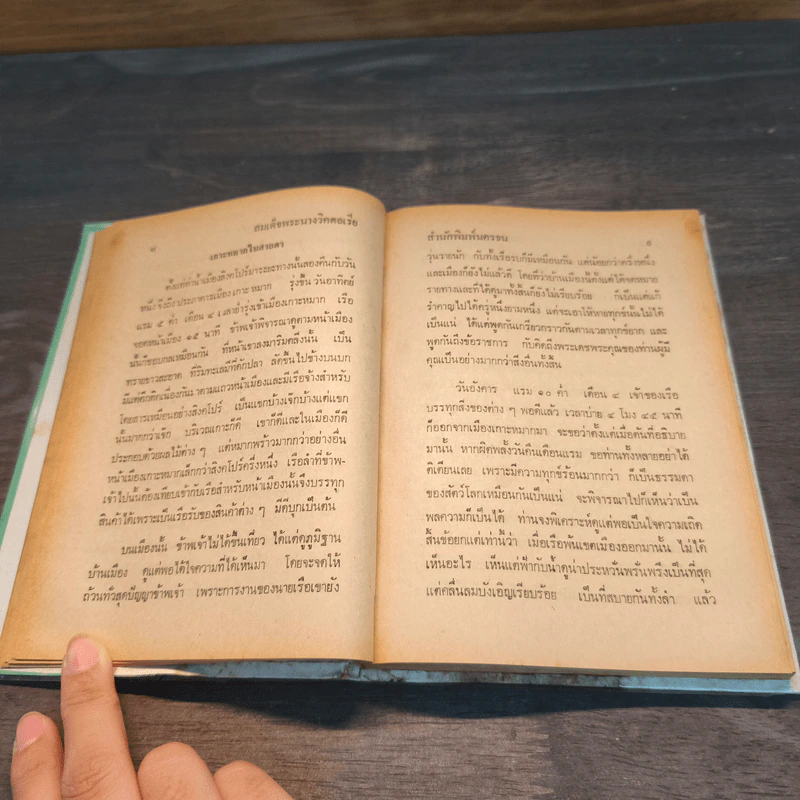 ๔
สมเด็จพระนางวิคตอเรีย
เกาะหมากในสายตา
ตั้งแต่ค่ำเมืองสิงคโปร์มาระยะทางนั้นสองคืนกับวัน
หนึ่ง จึงถึงประภาคารเมืองเกาะหมาก รุ่งขึ้น วันอาทิตย์
แรม ๕ ค่ำ เดือน ๔ เวลาย่ำรุ่งเข้าเมืองเกาะหมาก เรือ
จอดหน้าเมือง ๑๕ นาที ข้าพเจ้าพิจารณาดูตามหน้าเมือง
นั้นก็ชอบกลเหมือนกัน ที่หน้าเขาลงมาริมตลิ่งนั้น เป็น
ทรายขาวสะอาด ที่ริมทะเลมีที่ดักปลา ลัดขึ้นไปข้างบนบก
มีแต่ตึกติดเนื่องกันมาตามแถวหน้าเมืองและมีเรือจ้างสำหรับ
โดยสารเหมือนอย่างสิงคโปร์ เป็นแขกบ้างเจ๊กบ้างแต่แขก
นั้นมากกว่าเจ๊ก บริเวณเกาะก็ดี เขาก็ดีและในเมืองก็ดี
ประกอบด้วยผลไม้ต่าง ๆ แต่หมากพร้าวมากกว่าอย่างอื่น
หน้าเมืองเกาะหมากเล็กกว่าสิงคโปร์ครึ่งหนึ่ง เรือลำที่ข้าพ-
เจ้าไปนั้นต้องเทียบเข้ากับเรือสำหรับหน้าเมืองนั้นจึงบรรทุก
สินค้าได้เพราะเป็นเรือรับของสินค้าต่าง ๆ มีดีบุกเป็นต้น
บนเมืองนั้น ข้าพเจ้าไม่ได้ขึ้นเที่ยว ได้แต่ดูภูมิฐาน
บ้านเมือง ดูแต่พอได้ใจความที่ได้เห็นมา โดยจะจดให้
ถ้วนทั่วสุดปัญญาข้าพเจ้า เพราะการงานของนายเรือเขายัง
สำนักพิมพ์นครชน
๕
วุ่นวายนัก กับทั้งเรือรบก็มีเหมือนกัน แต่น้อยกว่าครึ่งหนึ่ง
และเมืองก็ยังไม่แล้วดี โดยที่ว่าบ้านเมืองนี้ตั้งแต่ได้จดหมาย
รายทางและที่ได้ดูมาทั้งสิ้นก็ยังไม่เรียบร้อย ก็เป็นแต่แก้
รำคาญไปได้ครู่หนึ่งยามหนึ่ง แต่จะเอาให้หายทุกข์นั้นไม่ได้
เป็นแน่ ได้แต่พูดกันเกรียวกราวกันตามเวลาทุกข์ยาก และ
พูดกันถึงข้อราชการ กับคิดถึงพระเดชพระคุณของท่านผู้มี
คุณเป็นอย่างมากกว่าสิ่งอื่นทั้งสิ้น
วันอังคาร แรม ๑๐ ค่ำ เดือน ๔ เจ้าของเรือ
บรรทุกสิ่งของต่าง ๆ พอดีแล้ว เวลาบ่าย ๔ โมง ๔๕ นาที
ก็ออกจากเมืองเกาะหมากมา จะขอว่าตั้งแต่เมื่อต้นที่อธิบาย
มานั้น หากผิดพลั้งวันคืนเดือนแรม ขอท่านทั้งหลายอย่าได้
ติเตียนเลย เพราะมีความทุกข์ร้อนมากกว่า ก็เป็นธรรมดา
ของสัตว์โลกเหมือนกันเป็นแน่ จะพิจารณาไปก็เห็นว่าเป็น
พลความก็เป็นได้ ท่านจงพิเคราะห์ดูแต่พอเป็นใจความเถิด
สิ้นข้อยกแต่เท่านี้ว่า เมื่อเรือพ้นเขตเมืองออกมานั้น ไม่ได้
เห็นอะไร เห็นแต่ฟ้ากับน้ำดูน่าประหวั่นพรั่นพรึงเป็นที่สุด
แต่คลื่นลมบังเอิญเรียบร้อย เป็นที่สบายกันทั้งลำ แล้ว